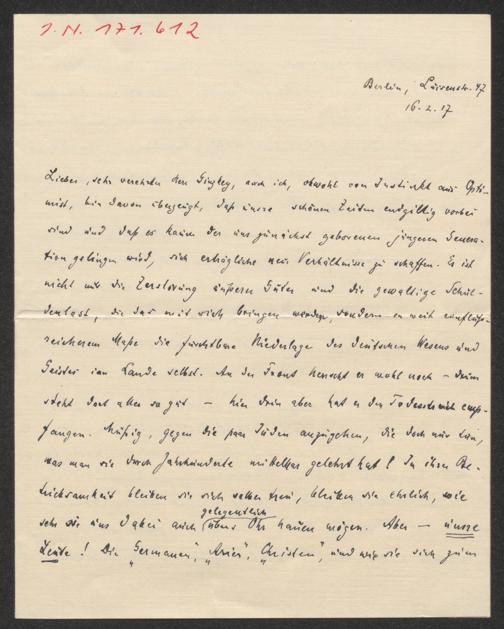 J. N. 171.612
Berlin, Luisenstr. 47
16. 2. 17
Lieber, sehr verehrter Herr Ginzkey, auch ich, obwohl von Instinkt aus Opti-
mist, bin davon überzeugt, daß unsre schönen Zeiten endgiltig vorbei
sind und daß es kaum der uns zunächst geborenen jüngeren Genera-
tion gelingen wird, sich erträgliche neue Verhältnisse zu schaffen. Es ist
nicht nur die Zerstörung äußerer Güter und die gewaltige Schul-
denlast, die das mit sich bringen werden, sondern in weit einfluß-
reicherem Maße die furchtbare Niederlage des deutschen Wesens und
Geistes im Lande selbst. An der Front herrscht er wohl noch – drum
steht dort alles so gut – hier drin aber hat er den Todesstreich emp-
fangen. Müßig, gegen die paar Juden anzugehen, die doch nur tun,
was man sie durch Jahrhunderte mittelbar gelehrt hat! In ihrer Be-
triebsamkeit bleiben sie sich selber treu, bleiben sie ehrlich, wie
gelegentlich
sehr sie uns dabei auch übers Ohr hauen mögen. Aber – unsre
Leute! Die „Germanen", „Arier", „Christen", und wie sie sich zum